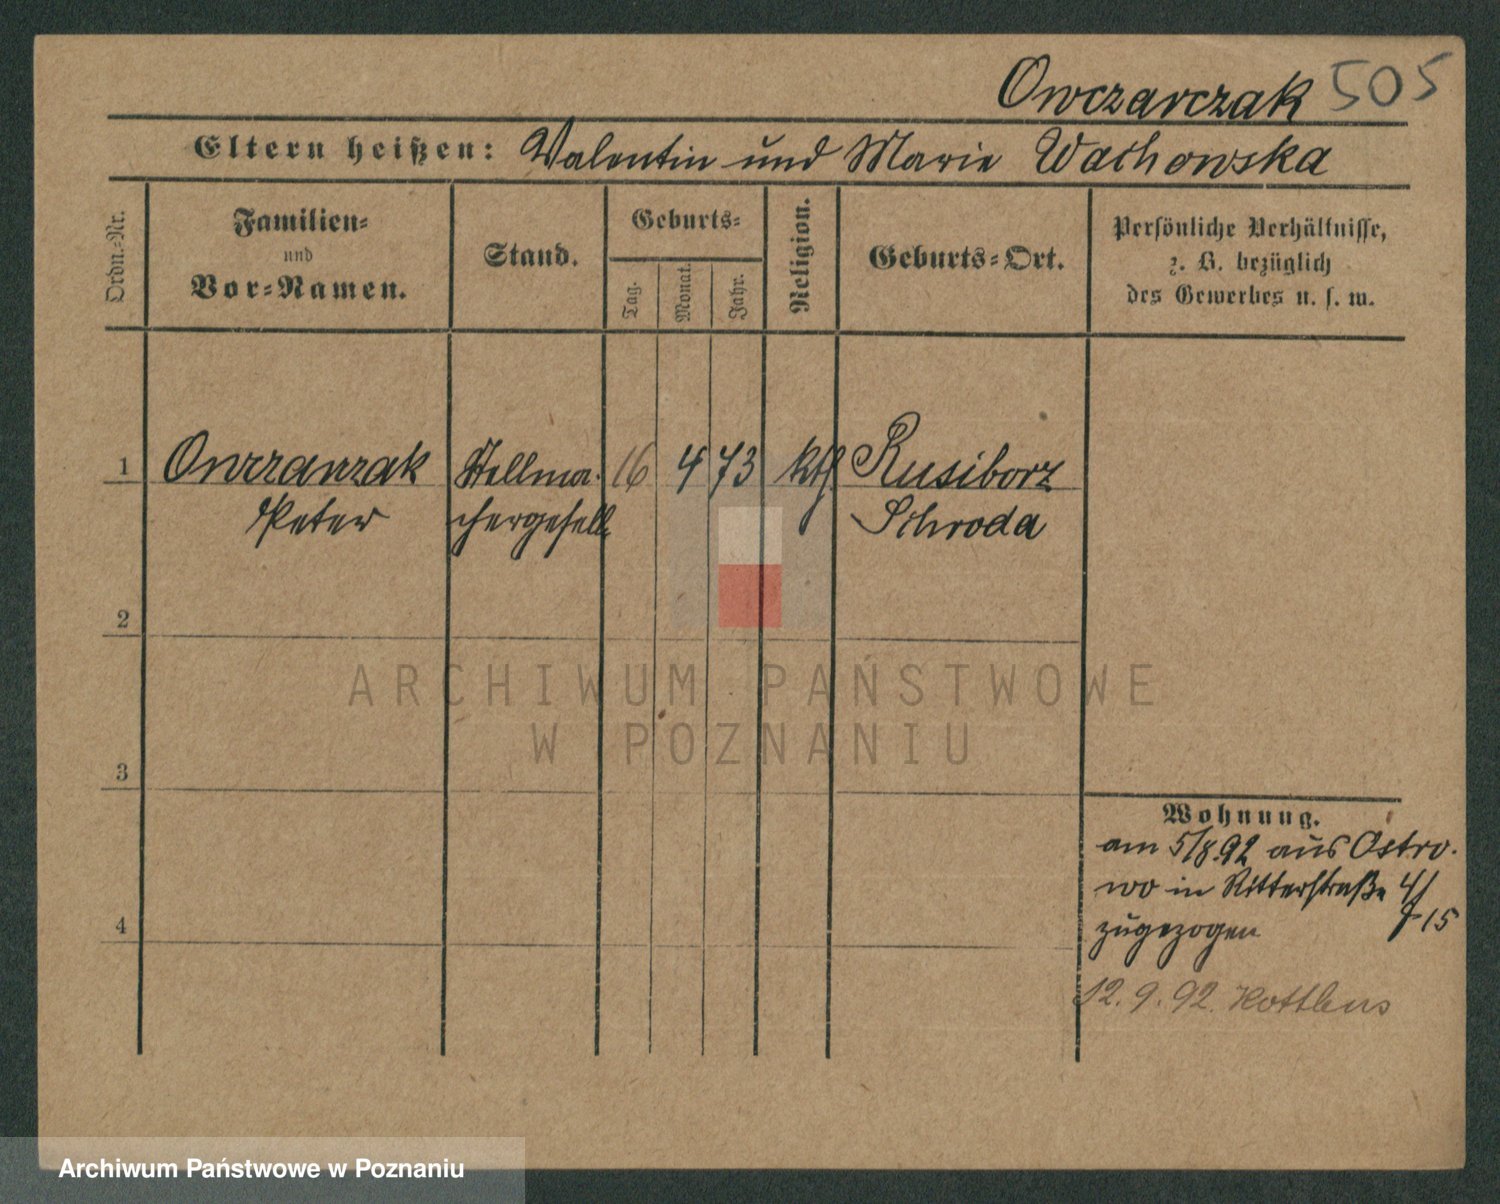 Owczarczak 505
Eltern heißen: Valentin und Marie Wachowska
Ordn.-Nr.
Familien-
und
Vor-Namen.
Stand.
Geburts-
Tag.
Monat.
Jahr.
Religion.
Geburts-Ort.
Persönliche Verhältnisse,
z. B. bezüglich
des Gewerbes u. s. w.
1 Owczarczak Stellma- 16 4 73 kth. Rusiborz
Peter chergeselle Schroda
2
3
4
Wohnung.
am 5/8.92 aus Ostro-
wo in Ritterstraße 4/
zugezogen 15
12.9.92. Kottbus
ARCHIWUM PAŃSTWOWE
W POZNANIU
Archiwum Państwowe w Poznaniu